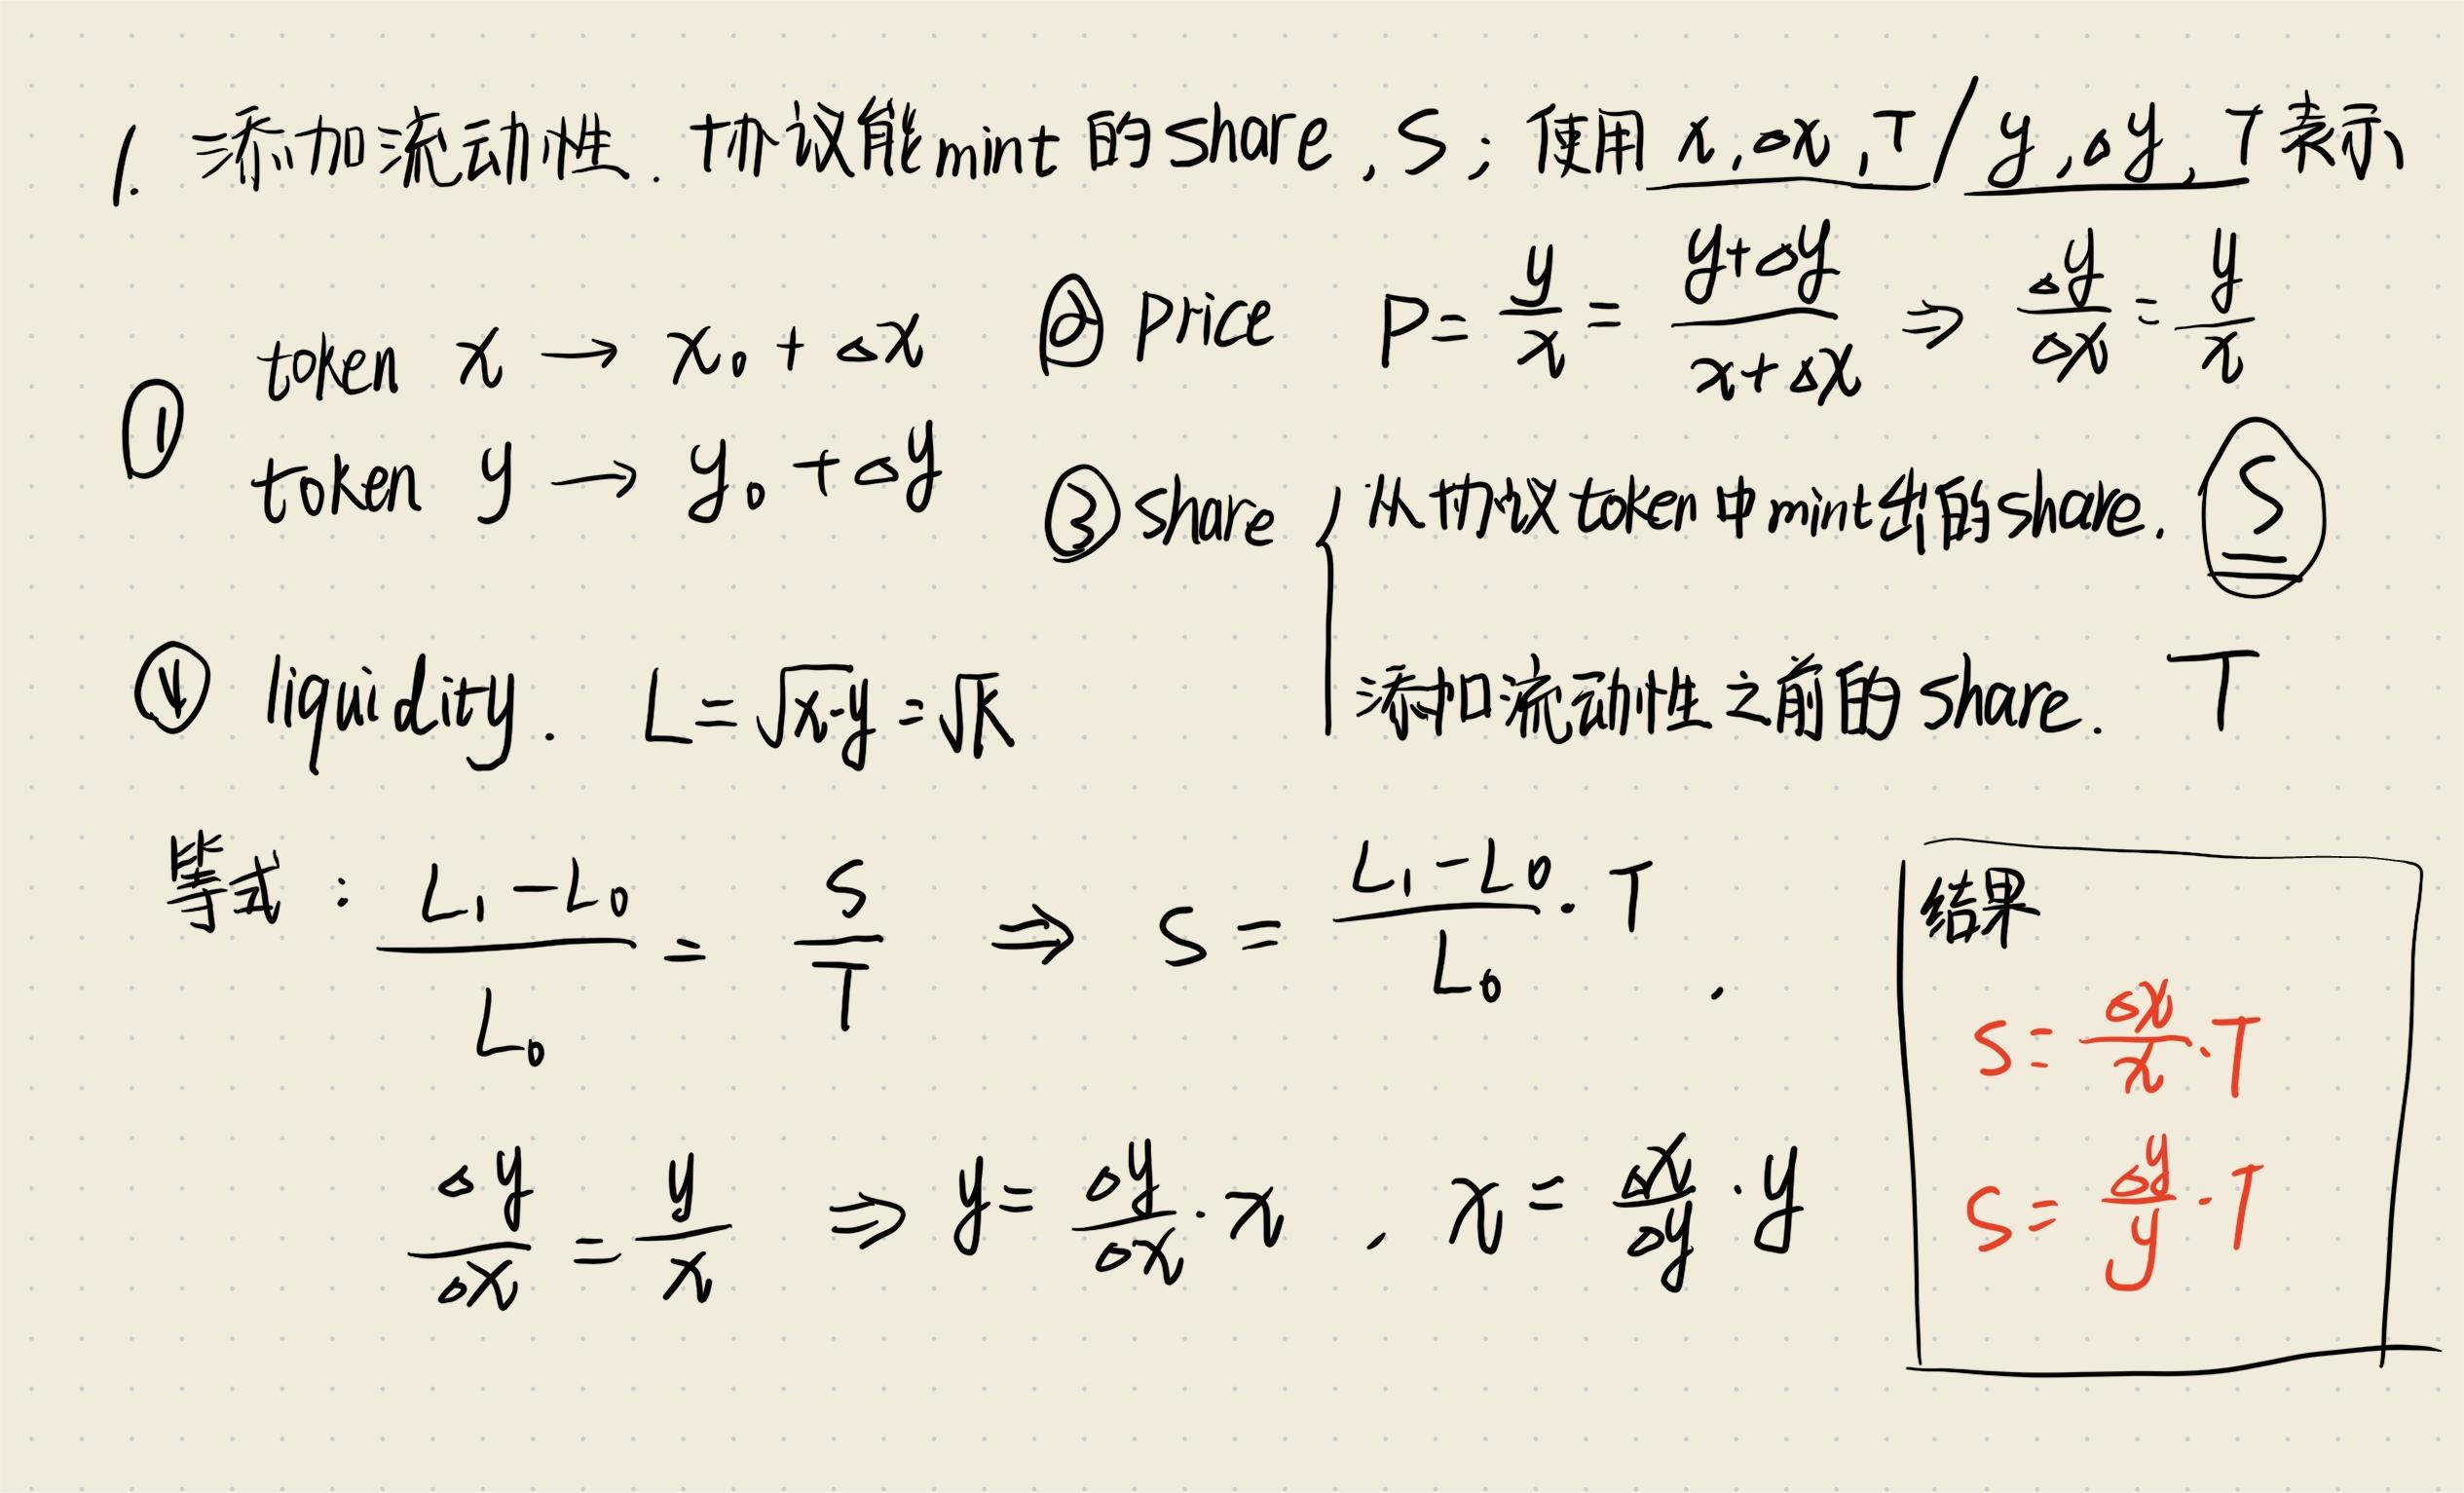 1. 添加流动性. 协议能mint的share, S; 使用 x, Δx, T / y, Δy, T 表示
① token x → x₀ + Δx
token y → y₀ + Δy
② price P = y/x = (y+Δy)/(x+Δx) ⇒ Δy/Δx = y/x
③ share { 从协议token中mint出的share. S
添加流动性之前的share. T
④ liquidity. L = √x·y = √K
等式: (L₁-L₀)/L₀ = S/T ⇒ S = (L₁-L₀)/L₀ · T .
Δy/Δx = y/x ⇒ y = Δy/Δx · x , x = Δx/Δy · y
结果
S = Δx/x · T
S = Δy/y · T